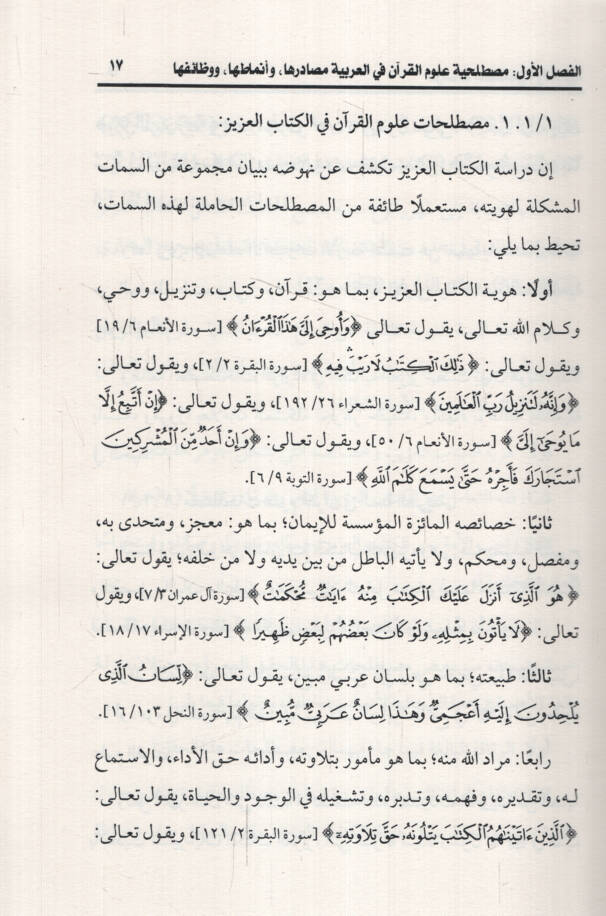 الفصل الأول: مصطلحية علوم القرآن في العربية مصادرها، وأنماطها، ووظائفها ١٧
١/ ١/ ١. مصطلحات علوم القرآن في الكتاب العزيز:
إن دراسة الكتاب العزيز تكشف عن نهوضه ببيان مجموعة من السمات
المشكلة لهويته، مستعملًا طائفة من المصطلحات الحاملة لهذه السمات،
تحيط بما يلي:
أولًا: هوية الكتاب العزيز، بما هو: قرآن، وكتاب، وتنزيل، ووحي،
وكلام الله تعالى، يقول تعالى ﴿وَأُوحِىَ إِلَىَّ هَٰذَا ٱلۡقُرۡءَانُ﴾ [سورة الأنعام ٦/ ١٩]
ويقول تعالى: ﴿ذَٰلِكَ ٱلۡكِتَٰبُ لَا رَيۡبَۛ فِيهِ﴾ [سورة البقرة ٢/ ٢]، ويقول تعالى:
﴿وَإِنَّهُۥ لَتَنزِيلُ رَبِّ ٱلۡعَٰلَمِينَ﴾ [سورة الشعراء ٢٦/ ١٩٢]، ويقول تعالى: ﴿إِنۡ أَتَّبِعُ إِلَّا
مَا يُوحَىٰٓ إِلَىَّ﴾ [سورة الأنعام ٦/ ٥٠]، ويقول تعالى: ﴿وَإِنۡ أَحَدٞ مِّنَ ٱلۡمُشۡرِكِينَ
ٱسۡتَجَارَكَ فَأَجِرۡهُ حَتَّىٰ يَسۡمَعَ كَلَٰمَ ٱللَّهِ﴾ [سورة التوبة ٩/ ٦].
ثانيًا: خصائصه المائزة المؤسسة للإيمان؛ بما هو: معجز، ومتحدى به،
ومفصل، ومحكم، ولا يأتيه الباطل من بين يديه ولا من خلفه؛ يقول تعالى:
﴿هُوَ ٱلَّذِىٓ أَنزَلَ عَلَيۡكَ ٱلۡكِتَٰبَ مِنۡهُ ءَايَٰتٞ مُّحۡكَمَٰتٌ﴾ [سورة آل عمران ٣/ ٧]، ويقول
تعالى: ﴿لَا يَأۡتُونَ بِمِثۡلِهِۦ وَلَوۡ كَانَ بَعۡضُهُمۡ لِبَعۡضٖ ظَهِيرٗا﴾ [سورة الإسراء ١٧/ ١٨].
ثالثًا: طبيعته؛ بما هو بلسان عربي مبين، يقول تعالى: ﴿لِّسَانُ ٱلَّذِى
يُلۡحِدُونَ إِلَيۡهِ أَعۡجَمِىّٞ وَهَٰذَا لِسَانٌ عَرَبِىّٞ مُّبِينٌ﴾ [سورة النحل ١٠٣/ ١٦].
رابعًا: مراد الله منه؛ بما هو مأمور بتلاوته، وأدائه حق الأداء، والاستماع
له، وتقديره، وفهمه، وتدبره، وتشغيله في الوجود والحياة، يقول تعالى:
﴿ٱلَّذِينَ ءَاتَيۡنَٰهُمُ ٱلۡكِتَٰبَ يَتۡلُونَهُۥ حَقَّ تِلَاوَتِهِۦٓ﴾ [سورة البقرة ٢/ ١٢١]، ويقول تعالى: